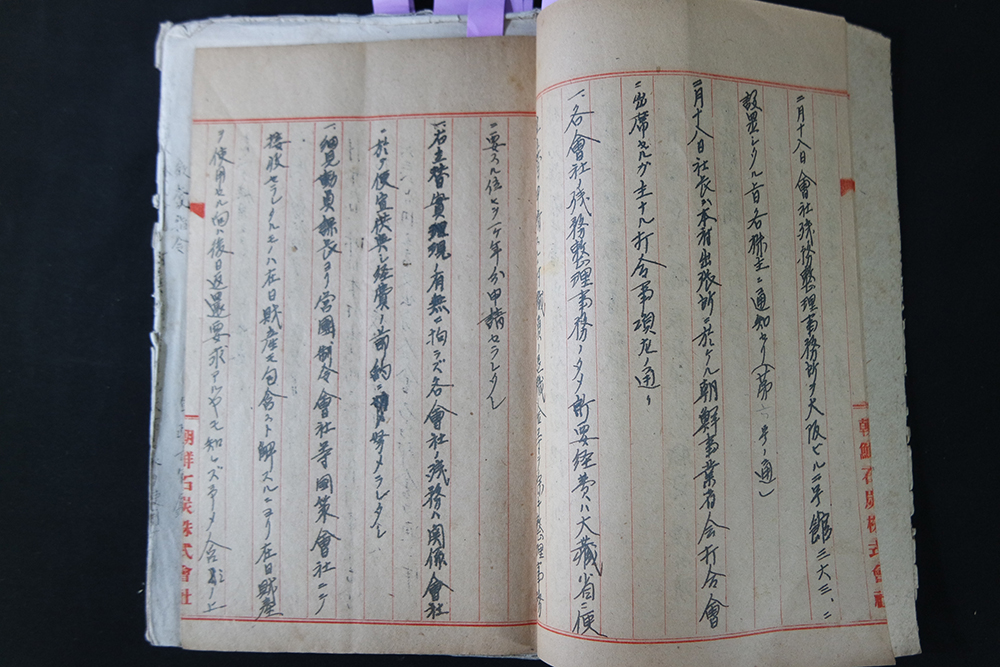 二月十八日會社残務整理事務所ヲ大阪ビル二号館三六三、ニ
設置シタル旨各株主ニ通知セリ(第六号ノ通)
二月十八日社長ハ本府出張所ニ於ケル朝鮮事業者会打合會
ニ出席セルガ主ナル打合事項左ノ通リ
一、各會社ノ残務整理事務ノタメ所要経費ハ大藏省ニ便
朝鮮石炭株式會社
ニ要スル位ヒヲ一ケ年分申請セラレタシ
一、右立替實現ノ有無ニ拘ラズ各會社ノ残務ハ関係會社
ニ於テ便宜供與シ経費ノ節約ニ努メラレタシ
一、細見動員課長ヨリ宮國、制令會社等國策會社ニテ
接收セラレタルモノハ在日財産モ包含スト解スルニヨリ在日財産
ヲ使用セル向ハ後日返還要求アルヤモ知レズ
朝鮮石炭株式會社